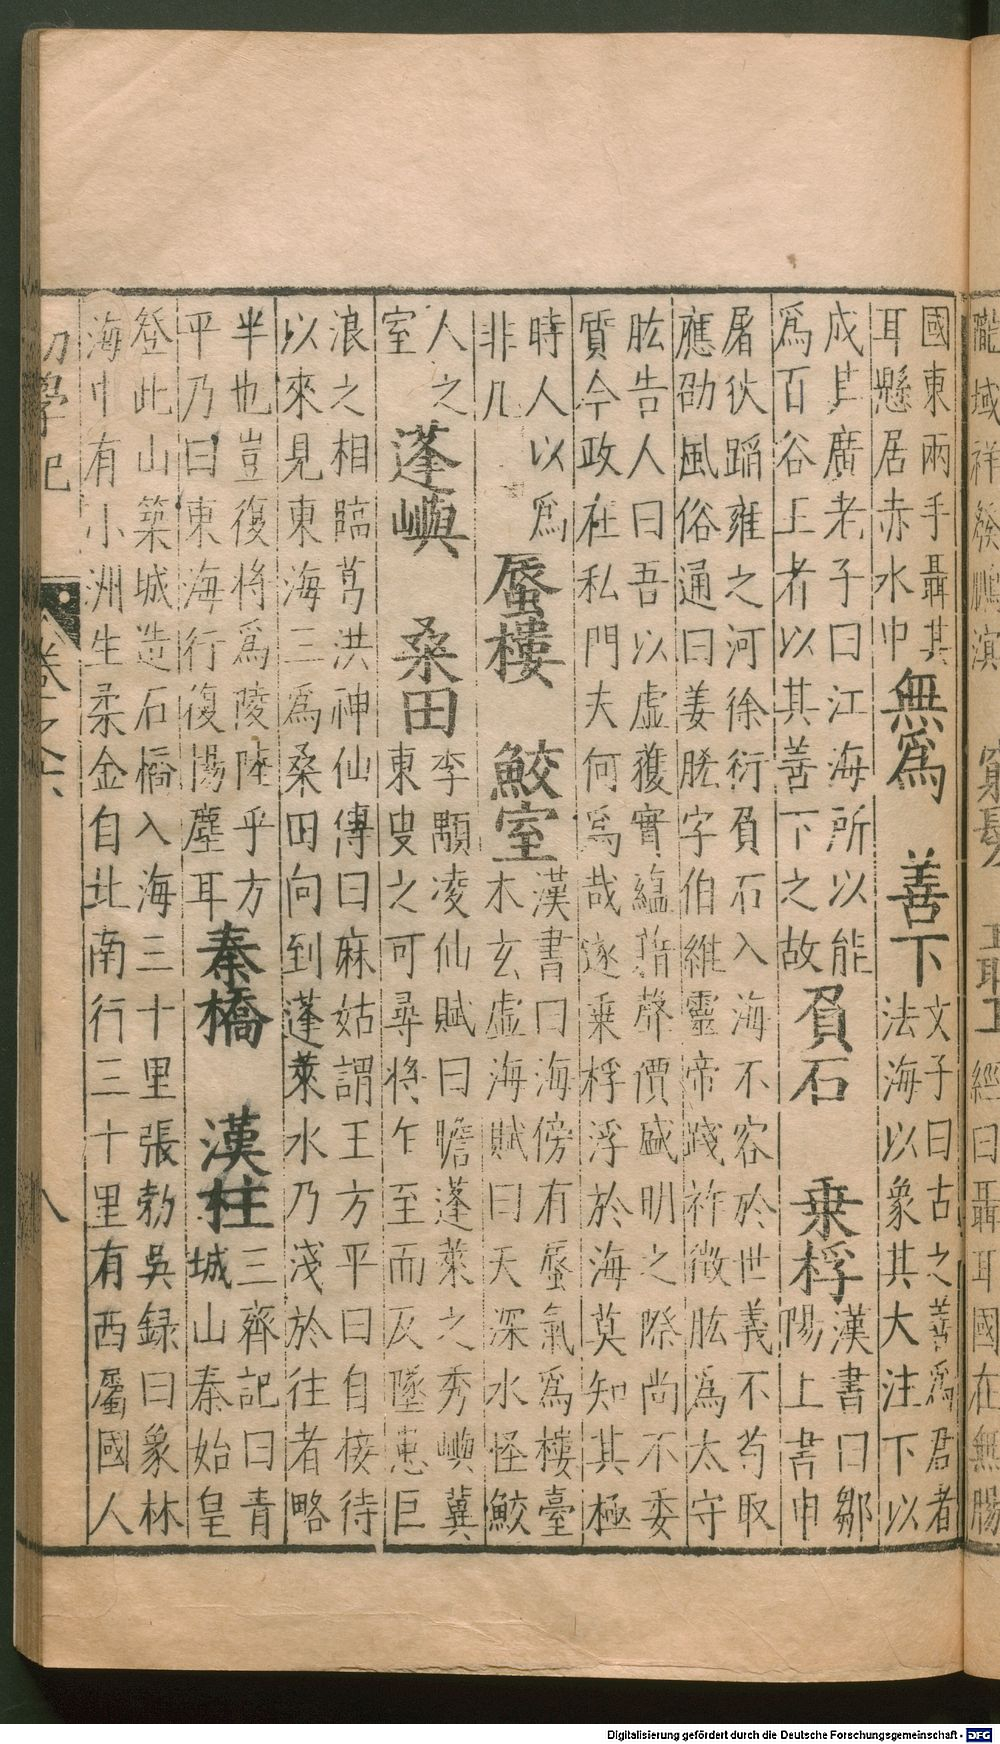 經曰聶耳國在無腸
國東兩手聶其
耳懸居赤水中
無爲　善下
文子曰古之善爲君者
法海以象其大注下以
成其廣老子曰江海所以能
爲百谷上者以其善下之故
負石　乗桴
漢書曰鄒
陽上書申
屠狄蹈雍之河徐衍負石入海不容於世義不苟取
應劭風俗通曰姜肱字伯維靈帝踐祚徵肱爲太守
肱告人曰吾以虚獲實蘊藉聲價盛明之際尚不委
質今政在私門夫何爲哉遂乗桴浮於海莫知其極
時人以爲
非凡
蜃樓　鮫室
漢書曰海傍有蜃氣爲樓臺
木玄虚海賦曰天深水怪鮫
人之
室
蓬嶼　桑田
李顒凌仙賦曰瞻蓬萊之秀嶼冀
東叟之可尋將乍至而反墜患巨
浪之相臨葛洪神仙傳曰麻姑謂王方平曰自接待
以來見東海三爲桑田向到蓬萊水乃淺於往者略
半也豈復將爲陵陸乎方
平乃曰東海行復揚塵耳
秦橋　漢柱
三齊記曰青
城山秦始皇
登此山築城造石橋入海三十里張勃吳録曰象林
海中有小洲生柔金自北南行三十里有西屬國人
初學記　卷之六　八
Digitalisierung gefördert durch die Deutsche Forschungsgemeinschaft - DFG